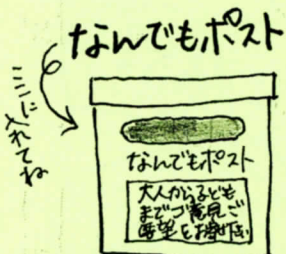 なんでもポスト
ここに
入れてね
なんでもポスト
大人から子ども
までご意見ご
要望をお寄せ下さい